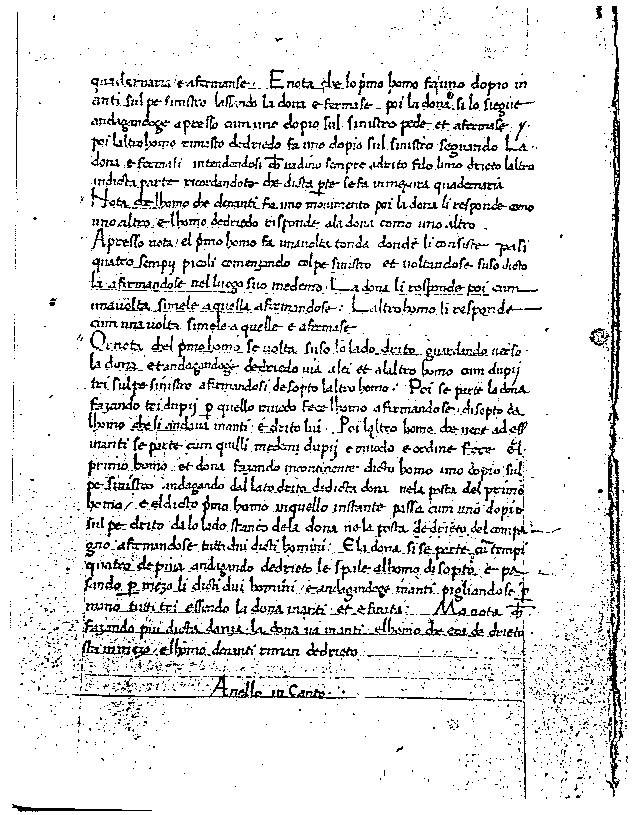 quadernaria e afermanse. E nota che lo pmo homo fa uno dopio in
anti sul pe sinistro lassando la dona e fermase. poi la dona si lo siegue
andagandoge apresso cum uno dopio sul sinistro pede et afermase. &
poi laltro homo rimasto dedriedo fa uno dopio sul sinistro seguando La
dona e fermasi intendandosi ch vadino sempre adrito filo luno drieto laltro
indicta parte ricordandote che dicta pte se fa in mexura quadernaria
Nota che lhomo che denanti fa uno movimento poi la dona li responde como
uno altro e lhomo dedriedo risponde ala dona como uno altro.
Apresso nota el pmo homo fa una volta tonda donde li consiste pasi
quatro sempij picoli comenzando col pe sinistro et voltandose suso dicto
la afirmandose nel luogo suo medemo. La dona li responde poi cum
una volta simele a quella afirmandose: Laltro homo li responde
cum una volta simele a quelle e afermase
Qi nota che l pmo homo se volta suso lo lado drito guardando verso
la dona et andagandoge dedriedo via a lei et alaltro homo cum dupij
tri sul pe sinistro afirmandosi de sopto laltro homo: Poi se parte la dona
fazando tri dupij p quello muodo fece lhomo afirmandose di sopto da
lhomo che li andava inanti e drito lui. Poi laltro homo che vene ad ess
inanti se parte cum quilli medemi dupij e muodo e ordine fece el
primo homo et dona fazando incontinente dicto homo uno dopio sul
pe sinistro andagando dal lato drito di dicta dona nela posta del primo
homo/ e el dicto pmo homo in quello instante passa cum uno dopio
sul pe drito da lo lado stanco dela dona ne la posta de drieto del compa
gno afirmandose tutti dui dicti homini: E la dona si se parte cu tempi
quatro de piva andagando dedrieto le spale al homo di sopto e pa
sando p mezo li dicti dui homini e andagandoge inanti pigliandose p
mano tutti tri essendo la dona inanti et e finita: Ma nota ch
fazando piu dicta danza la dona va inanti e lhomo che era de drieto
sta in mezo e lhomo denanti riman dedrieto
Anello in Canto